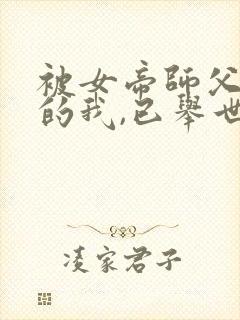 被女帝師父
的我,已舉世
凌家君子